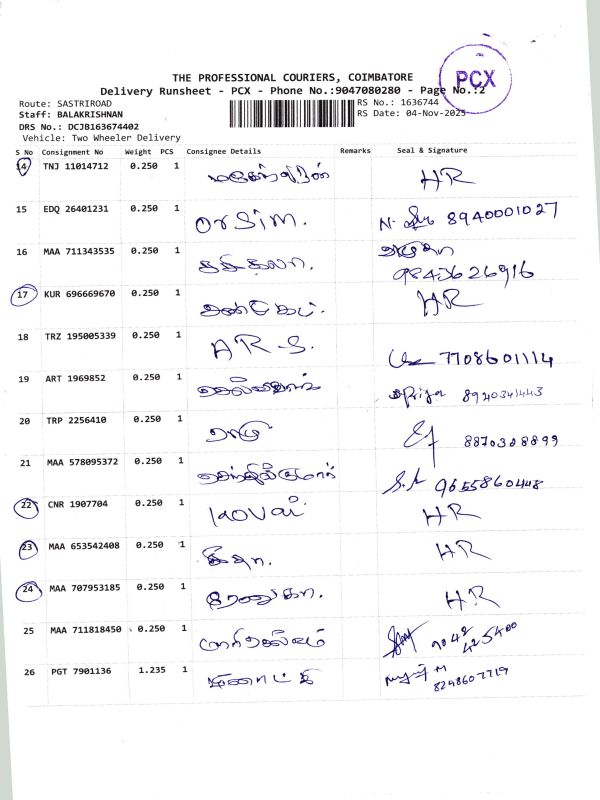 THE PROFESSIONAL COURIERS, COIMBATORE
Delivery Runsheet - PCX - Phone No.:9047080280 - Page No.:2
PCX
Route: SASTRIROAD
RS No.: 1636744
Staff: BALAKRISHNAN
RS Date: 04-Nov-2025
DRS No.: DCJB163674402
Vehicle: Two Wheeler Delivery
S No Consignment No Weight PCS Consignee Details Remarks Seal & Signature
14 TNJ 11014712 0.250 1 HR
15 EDQ 26401231 0.250 1 Orsim. 8940001027
16 MAA 711343535 0.250 1
9843626916
17 KUR 696669670 0.250 1 HR
18 TRZ 195005339 0.250 1 A R S. 7708601114
19 ART 1969852 0.250 1 Priya 8940341443
20 TRP 2256410 0.250 1 ராமு 8870308899
21 MAA 578095372 0.250 1 செந்தில்குமார் 9655860448
22 CNR 1907704 0.250 1 HR
23 MAA 653542408 0.250 1 HR
24 MAA 707953185 0.250 1 ரேணுகா. HR
25 MAA 711818450 0.250 1 9042
425400
26 PGT 7901136 1.235 1
8248607719